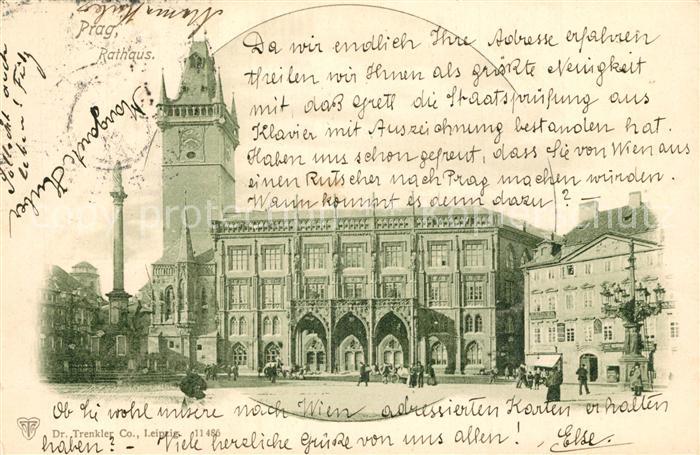 Prag,
Rathaus.
Da wir endlich Ihre Adresse erfahren
theilen wir Ihnen als größte Neuigkeit
mit, daß Gretl die Staatsprüfung aus
Klavier mit Auszeichnung bestanden hat.
Haben uns schon gefreut, dass Sie von Wien aus
einen Rutscher nach Prag machen würden.
Wann kommt es denn dazu? –
Ob Sie wohl unsere nach Wien adressierten Karten erhalten
haben? – Viele herzliche Grüße von uns allen! Else.
Dr. Trenkler Co., Leipzig. 11486